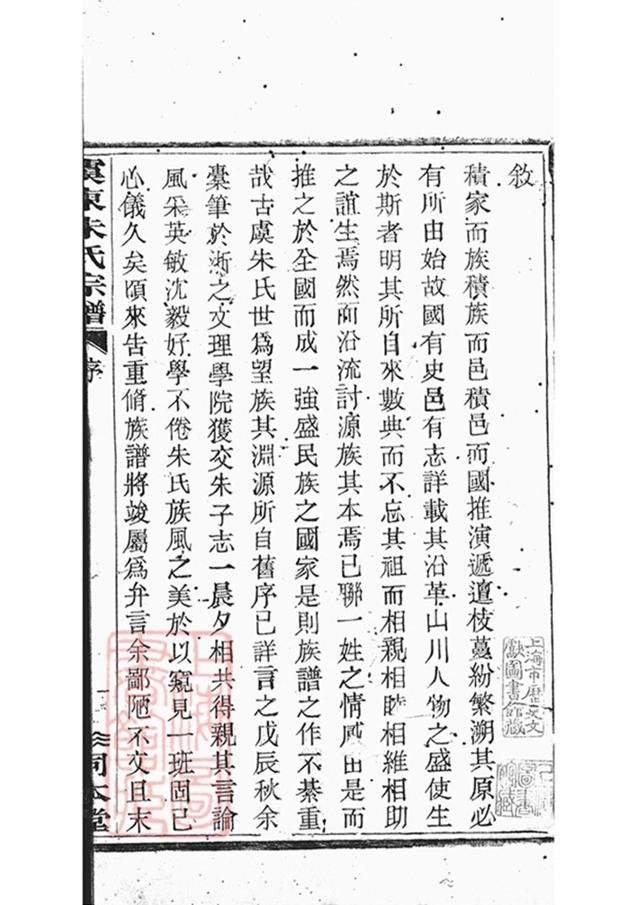 敘
積家而族積族而邑積邑而國推演遞邅枝蔓紛繁溯其原必
有所由始故國有史邑有志詳載其沿革山川人物之盛使生
於斯者明其所自來數典而不忘其祖而相親相睦相維相助
之誼生焉然而沿流討源族其本焉已聯一姓之情感由是而
推之於全國而成一強盛民族之國家是則族譜之作不綦重
哉古虞朱氏世爲望族其淵源所自舊序已詳言之戊辰秋余
橐筆於浙之文理學院獲交朱子志一晨夕相共得親其言論
風采英敏沈毅好學不倦朱氏族風之美於以窺見一班固已
心儀久矣頃來告重脩族譜將竣屬爲弁言余鄙陋不文且末
虞東朱氏宗譜
序
一
同本堂
上海市歷史文
獻圖書館藏